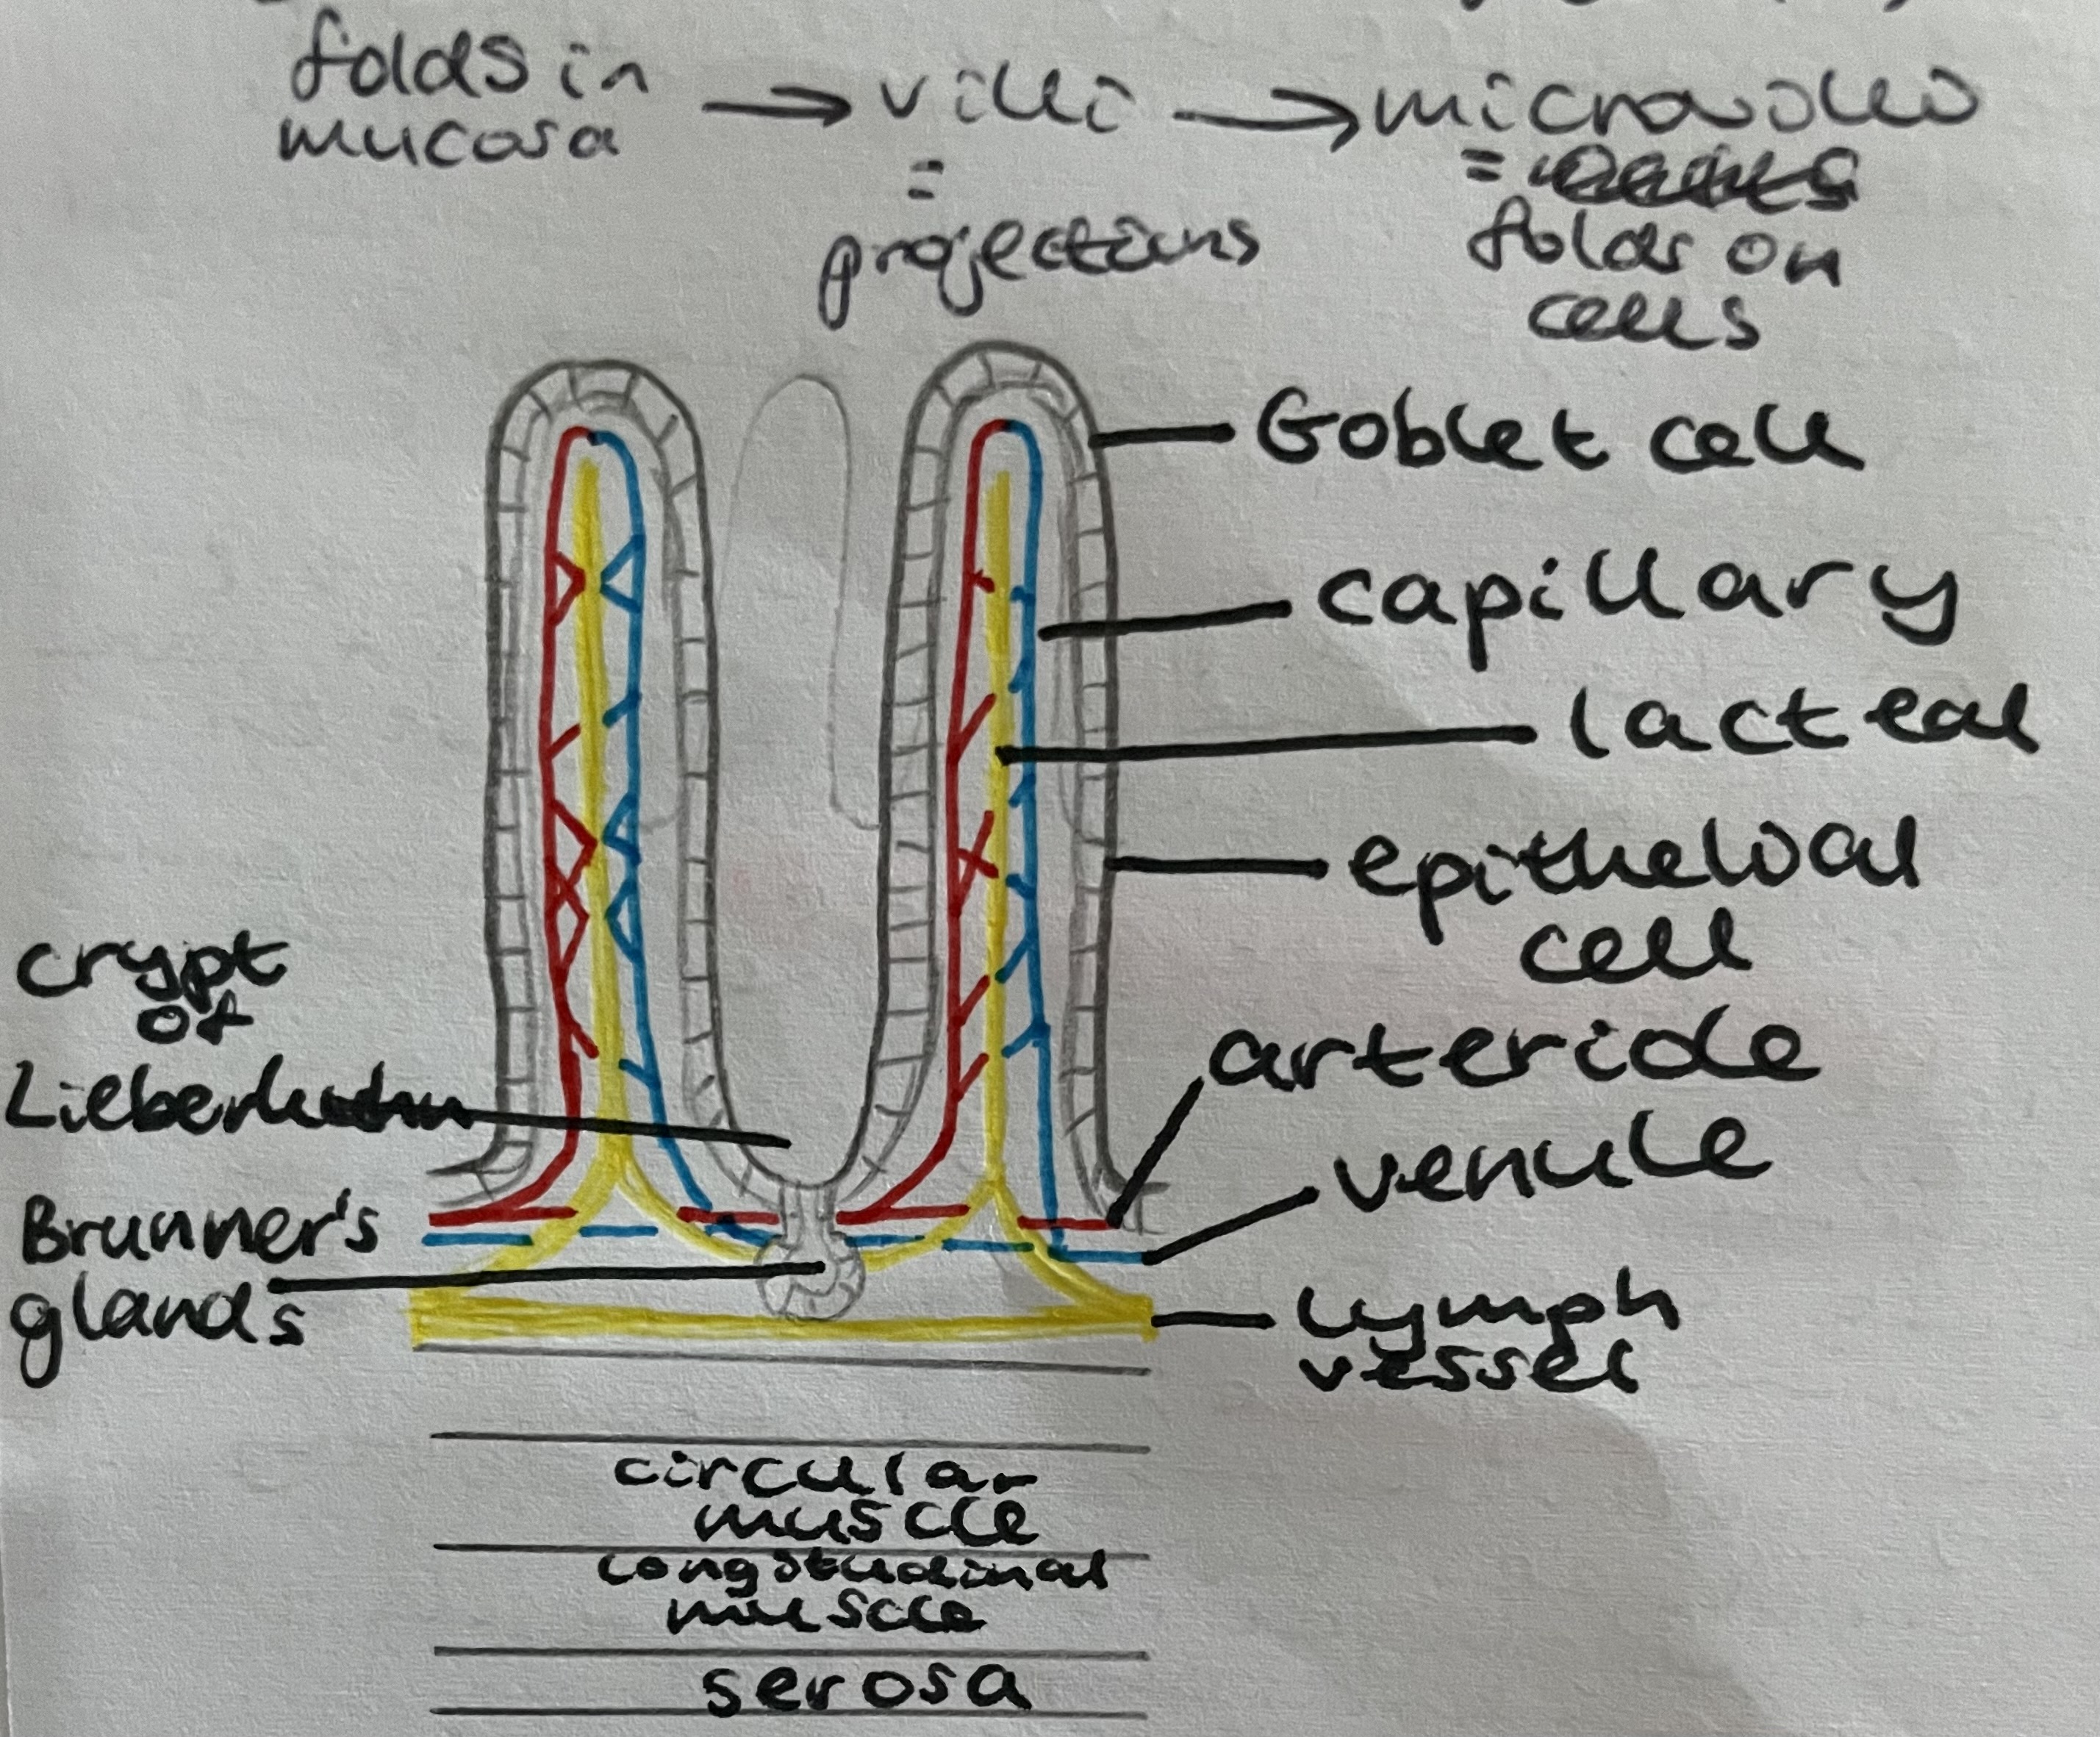 folds in
mucosa
→ villi
=
projections
→ microvilli
=
folds on
cells
Goblet cell
capillary
lacteal
epithelial
cell
crypt
of
Lieberkuhn
arteriole
venule
Brunner's
glands
lymph
vessel
circular
muscle
longitudinal
muscle
serosa